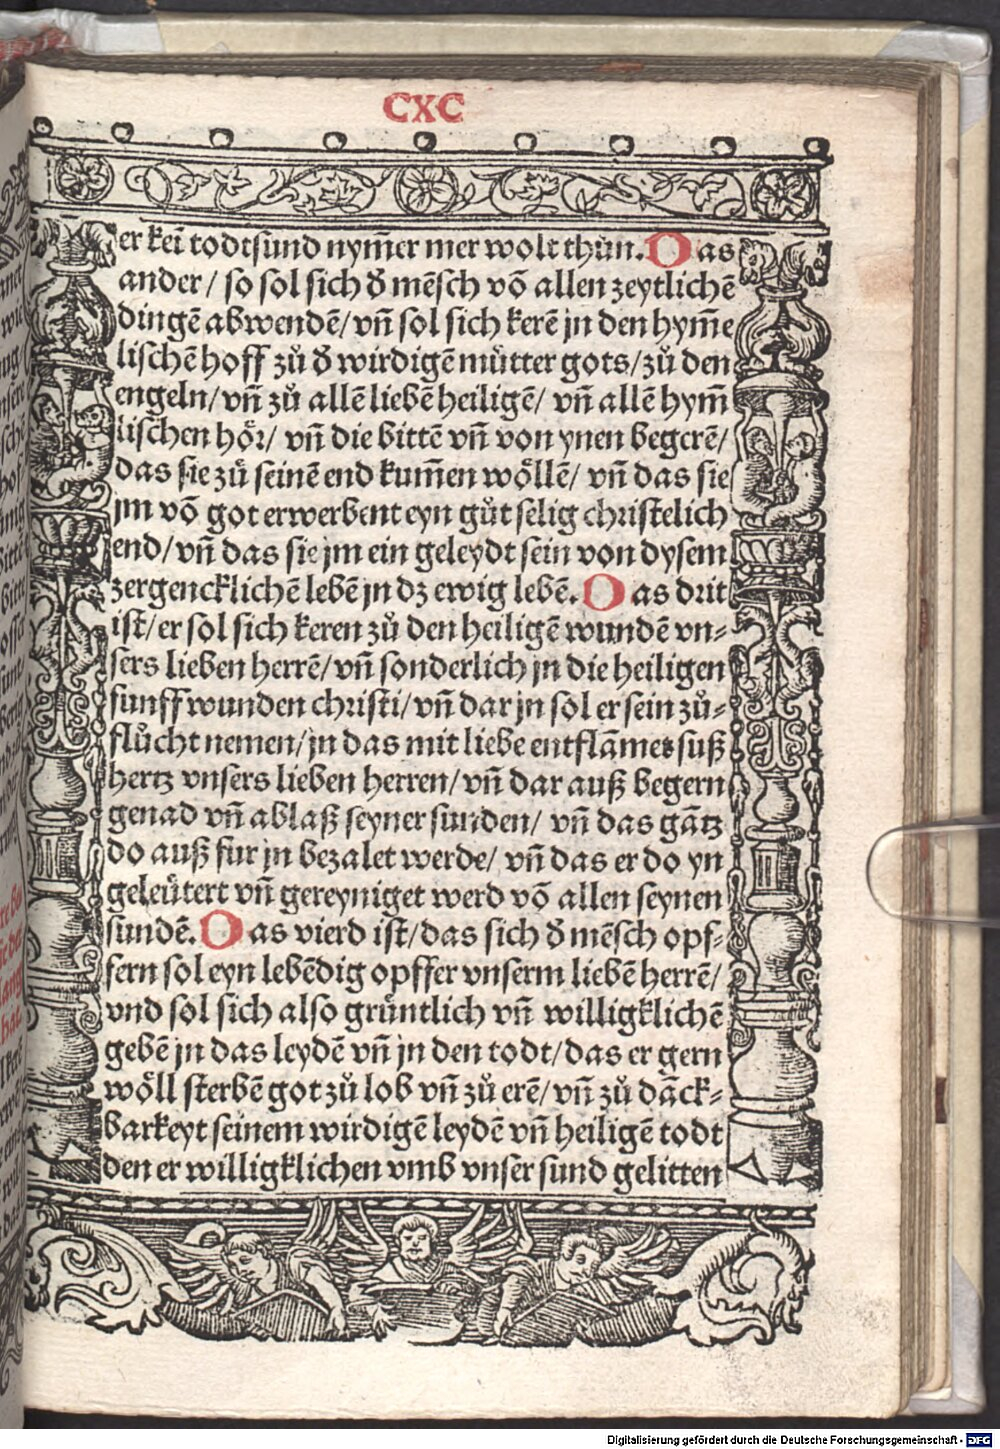 CXC
er keī todtsund nym̄er mer wolt thůn. Das
ander / so sol sich d̄ mēsch vō allen zeytlichē
dingē abwendē/ vn̄ sol sich kerē jn den hym̄e
lischē hoff zů d̄ wirdigē můtter gots/ zů den
engeln/ vn̄ zů allē liebē heiligē/ vn̄ allē hym̄
lischen hör/ vn̄ die bittē vn̄ von ynen begerē/
das sie zů seinē end kum̄en wöllē/ vn̄ das sie
jm vō got erwerbent eyn gůt selig christelich
end/ vn̄ das sie jm ein geleydt sein von dysem
zergencklichē lebē jn dz ewig lebē. Das drit
ist/ er sol sich keren zů den heiligē wundē vn⸗
sers lieben herrē/ vn̄ sonderlich jn die heiligen
funff wunden christi/ vn̄ dar jn sol er sein zů⸗
flůcht nemen/ jn das mit liebe entflāmes suß
hertz vnsers lieben herren/ vn̄ dar auß begern
genad vn̄ ablaß seyner sunden/ vn̄ das gātz
do auß fur jn bezalet werde/ vn̄ das er do yn
geleütert vn̄ gereyniget werd vō allen seynen
sundē. Das vierd ist/ das sich d̄ mēsch opf⸗
fern sol eyn lebēdig opffer vnserm liebē herrē/
vnd sol sich also grüntlich vn̄ willigklichē
gebē jn das leydē vn̄ jn den todt/ das er gern
wöll sterbē got zů lob vn̄ zů erē/ vn̄ zů dāck⸗
barkeyt seinem wirdigē leydē vn̄ heiligē todt
den er willigklichen vmb vnser sund gelitten
Digitalisierung gefördert durch die Deutsche Forschungsgemeinschaft - DFG